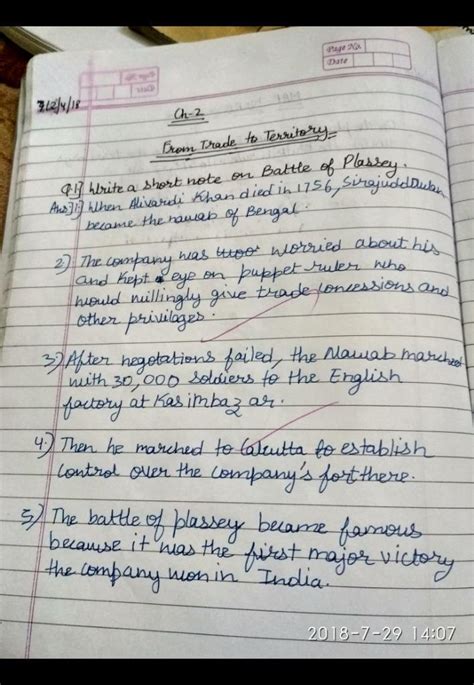 Page No.
Date
2/4/18
Ch-2
From Trade to Territory
Q.1) Write a short note on Battle of Plassey.
Ans] 1) When Alivardi Khan died in 1756, Sirajudd Dulah
became the nawab of Bengal.
2) The company was worried about his
and kept eye on puppet ruler who
would willingly give trade concessions and
other privilages.
3) After negotations failed, the Nawab marched
with 30,000 soldiers to the English
factory at Kasimbazar.
4.) Then he marched to Calcutta to establish
control over the company's fort there.
5) The battle of plassey became famous
because it was the first major victory
the company won in India.
2018-7-29 14:07